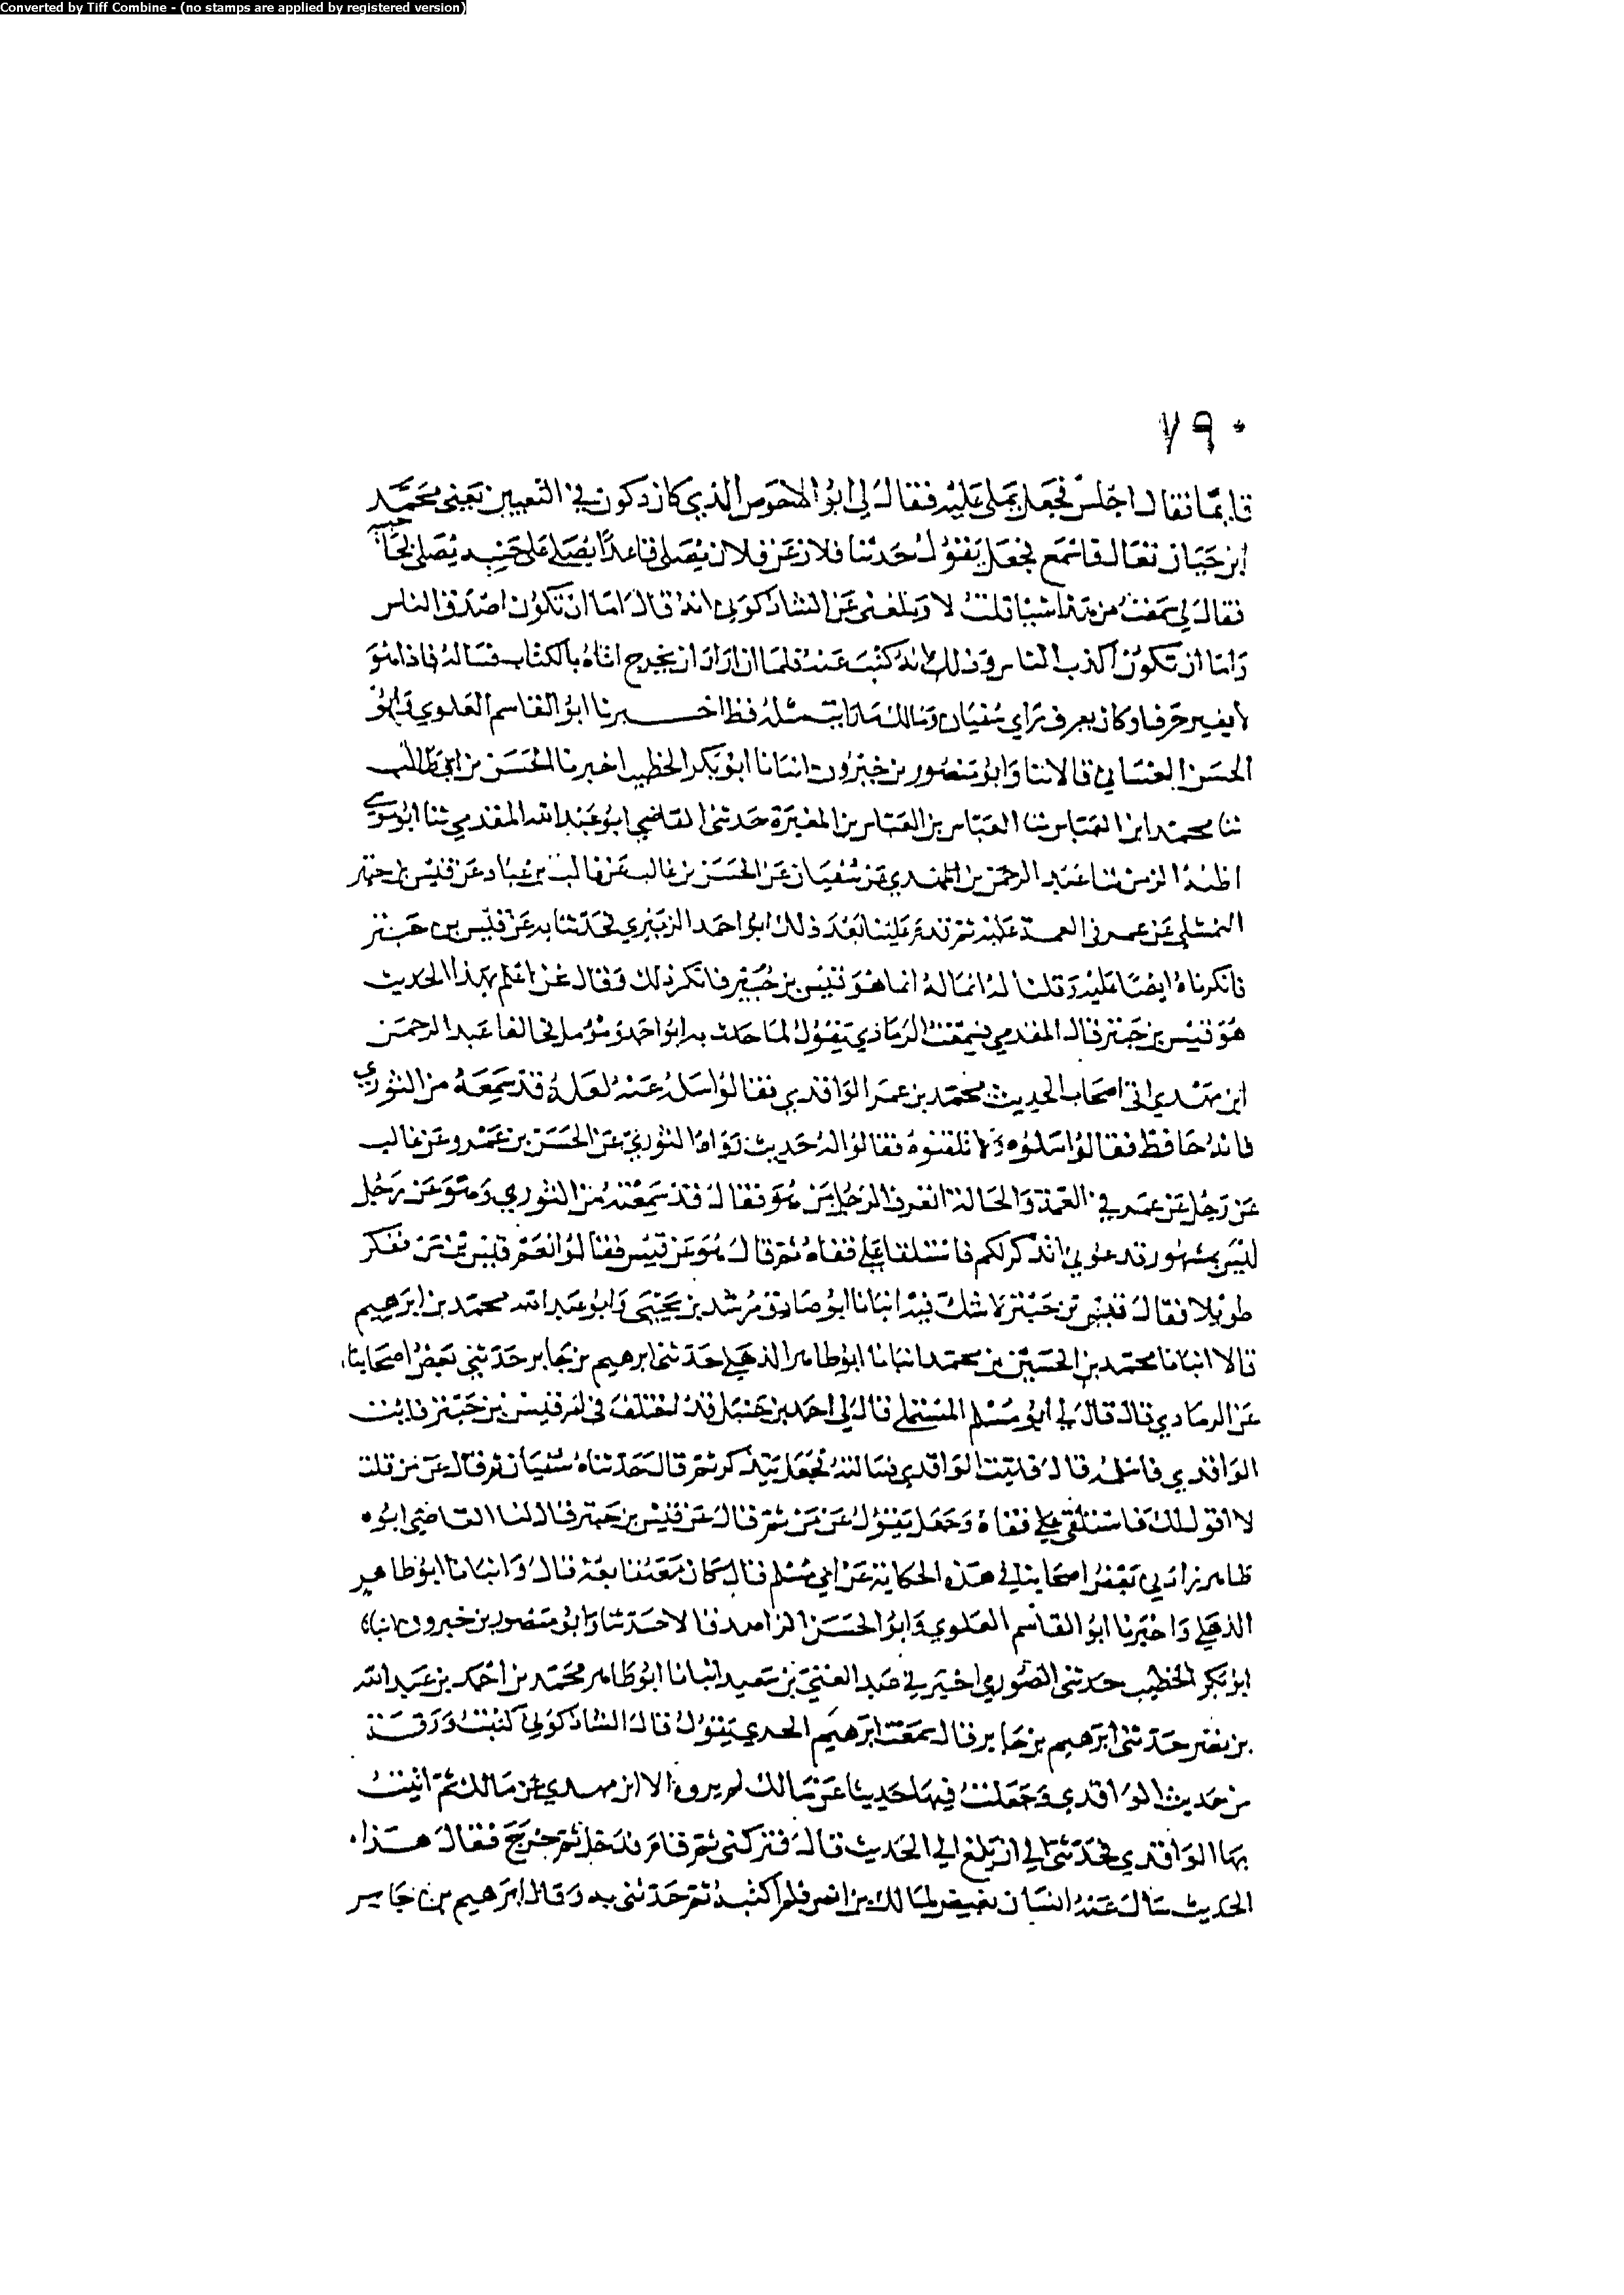 Converted by Tiff Combine - (no stamps are applied by registered version)
٧٩٠
قايما فقال اجلس فجعل يملى عليه فقال لي ابو الاحوص الذي كان دكون في التعيين يعني محمد
ابن حيان تعال فاسمع فجعل يقول حدثنا فلان عن فلان يصلى قاعدا يصلي على جنبه يصلى بحاجبيه
فقال لي سمعت من هذا شيا قلت لا وبلغنى عن الشاذكوني انه قال اما ان تكون اصدق الناس
واما ان تكون اكذب الناس وذلك انه كتب عنه فلما ان اراد ان يخرج اتاه بالكتاب فساله فاذا هو
لا يغير حرفا وكان يعرف راي سفيان ومالك ما رايت مثله قط اخبرنا ابو القاسم العلوي وابو
الحسن الغساني قالا ثنا وابو منصور بن خيرون انبانا ابو بكر الخطيب اخبرنا الحسن بن ابي طالب
ثنا محمد ابن العباس ثنا العباس بن العباس بن المغيرة حدثنى القاضي ابو عبد الله المقدمي ثنا ابو موسى
الزمن ثنا عبد الرحمن بن المهدي عن سفيان عن الحسن بن غالب عن غالب بن عباد عن قيس بن حبتر
النهشلى عن عمر في العمة عليه ثم قدم علينا بعد ذلك ابو احمد الزبيري فحدثنا به عن قيس بن حبتر
فانكرناه ايضا عليه وقلنا له انما هو قيس بن حبتر فانكر ذلك وقال نحن اعلم بهذا الحديث
هو قيس بن حبتر قال المقدمي فسمعت الرمادي يقول لما حدث به ابو احمد ومؤمل فخالفا عبد الرحمن
ابن مهدي اتى اصحاب الحديث محمد بن عمر الواقدي فقالوا اسلوا عنه لعله قد سمعه من الثوري
فانه حافظ فقالوا اسلوه ولا تلقنوه فقالوا له حديث رواه الثوري عن الحسن بن عمرو عن غالب
عن رجل عن عمر في العمة والخالة اتعرف الرجل من هو فقال قد سمعته من الثوري وهو عن رجل
ليس بمشهور قدعوني اتذكر لكم فاستلقا على قفاه ثم قال هو عن قيس فقالوا نعم قيس بن من ففكر
طويلا فقال قيس بن حبتر لا شك فيه انبانا ابو صادق مرشد بن يحيى وابو عبد الله محمد بن ابرهيم
قالا انبانا محمد بن الحسين بن محمد انبانا ابو طاهر الذهلي حدثنى ابرهيم بن جابر حدثني بعض اصحابنا
عن الرمادي قال قال لي ابو مسلم المستملي قال لي احمد بن حنبل قد اختلف في امر قيس بن حبتر فايت
الواقدي فاسله قال فلقيت الواقدي فسالته فجعل يتذكر ثم قال حدثناه سفيان ثم قال عن من قلت
لا اقول لك فاستلقى على قفاه وجعل يقول عن من ثم قال عن قيس بن حبتر قال لنا القاضي ابو
طاهر زادني بعض اصحابنا في هذه الحكاية عن ابي مسلم قال كان معتنا بعد قال وانبانا ابو طاهر
الذهلي واخبرنا ابو القاسم العلوي وابو الحسن الزاهد قالا حدثنا وابو منصور بن خيرون انبا
ابو بكر الخطيب حدثنى الصوري اخبرني عبد الغني بن سعيد انبانا ابو طاهر محمد بن احمد بن عبد الله
بن نصر حدثنى ابرهيم بن جابر قال سمعت ابرهيم الحربي يقول قال الشاذكوني كتبت ورقة
من حديث الواقدي وجعلت فيها حديثا عن مالك لم يروه الا ابن مهدي عن مالك ثم اتيت
بها الواقدي فحدثنى الى ان بلغ الى الحديث قال فتركنى ثم قام فدخل ثم خرج فقال هذا
الحديث سال عنه انسان بغيض لمالك بن انس فلم اكتبه ثم حدثنى به وقال ابرهيم بن جابر